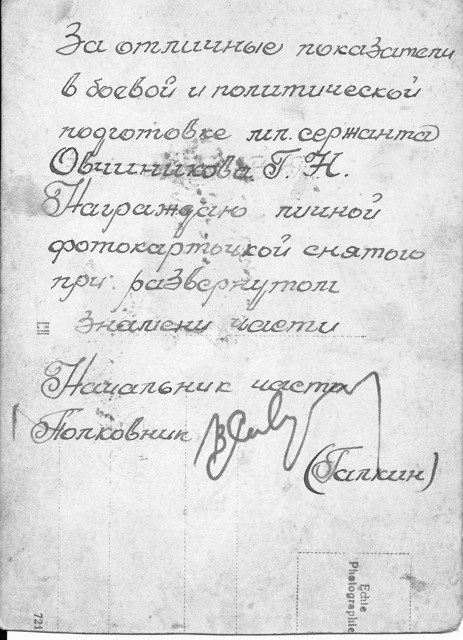 За отличные показатели
в боевой и политической
подготовке мл. сержанта
Овчинникова Г. Н.
Награждаю личной
фотокарточкой снятого
при развернутом
знамени части
Начальник части
Полковник
(Галкин)
Echte
Photographie
721